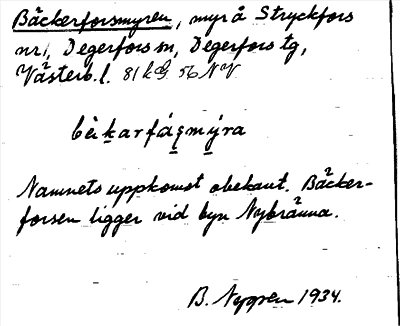 Bäckerforsmyren, myr å Stryckfors
nr 1, Degerfors sn, Degerfors tg,
Västerb. l. 81 k G. 56 NV
bèkarfásmýra
Namnets uppkomst obekant. Bäcker-
forsen ligger vid byn Nybränna.
B. Nygren 1934.